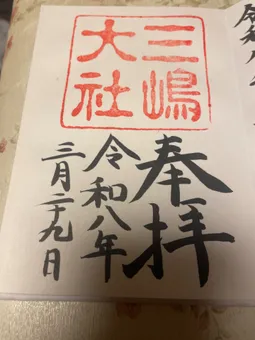 三嶋
大社
奉拝
令和八年
三月二十九日